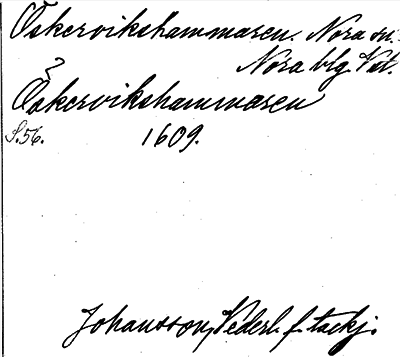 Öskervikshammaren. Nora sn.
Nora blg Vstm.
?
Öskervikshammaren
S. 56. 1609.
Johansson, Vederl. f. tackj.